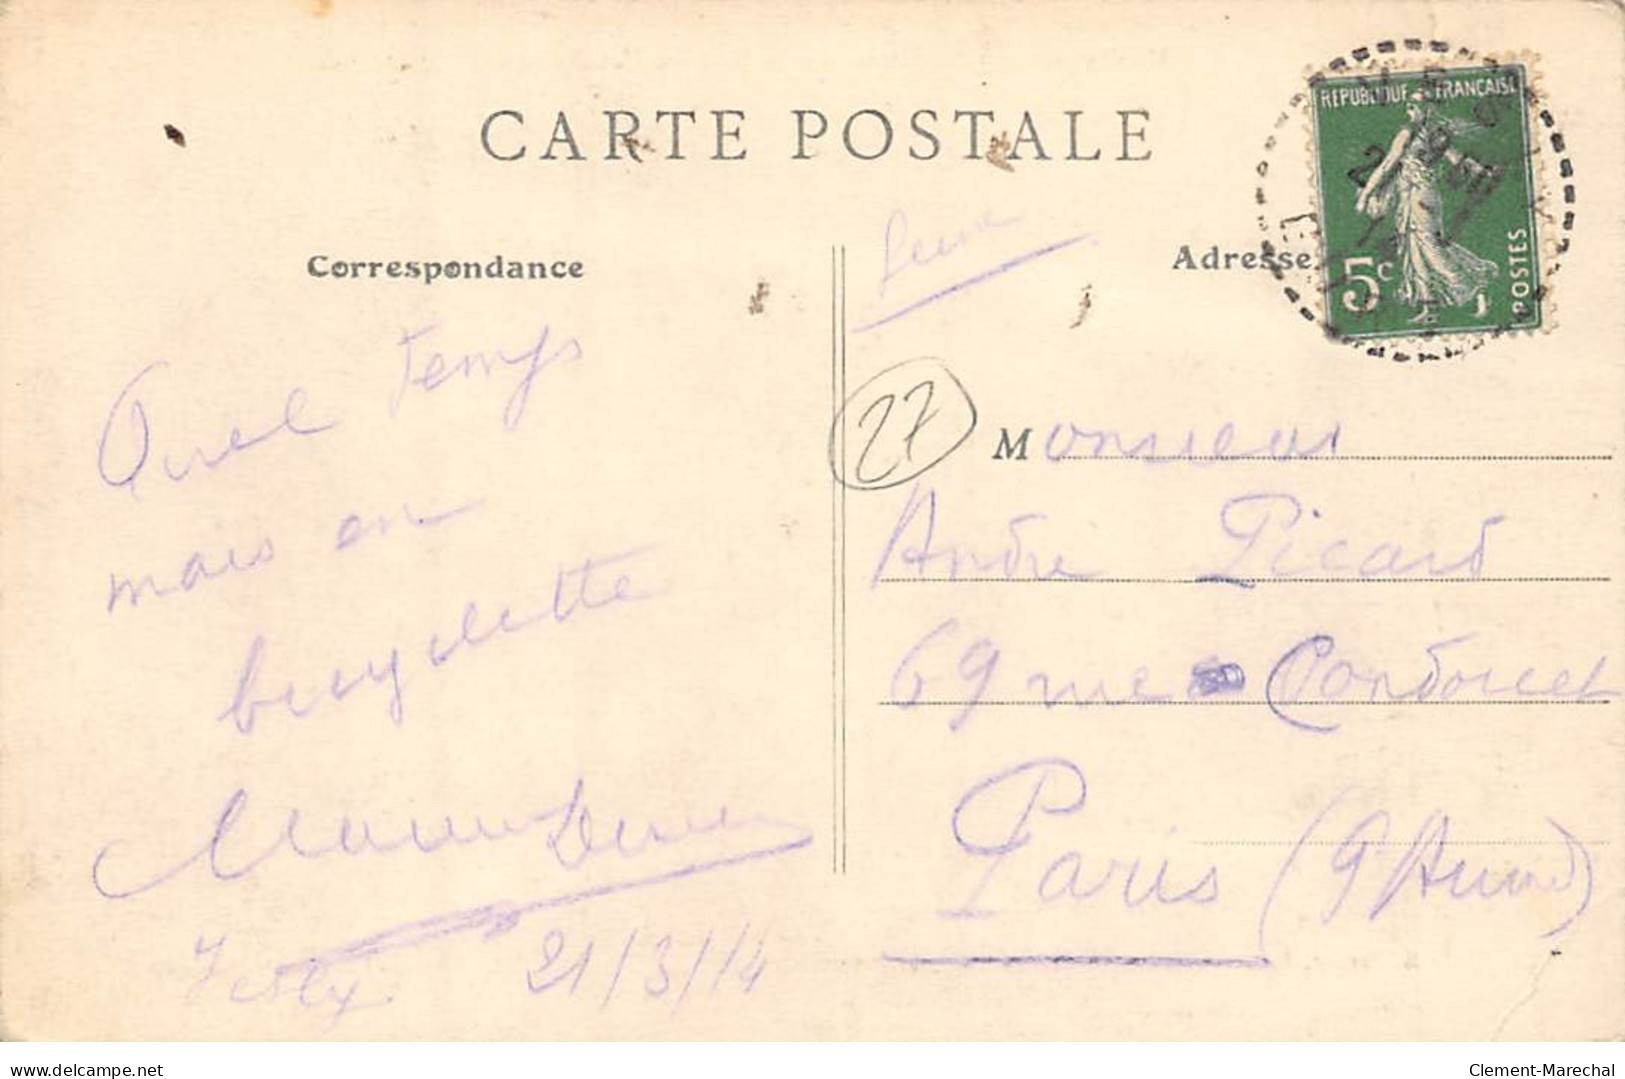 CARTE POSTALE
Correspondance
Quel temps
mais en
bicyclette
21/3/14
Adresse
REPUBLIQUE FRANÇAISE
5c
POSTES
27
Monsieur
André Picard
69 rue Condorcet
Paris (9e Arrond)
www.delcampe.net
Clement-Marechal